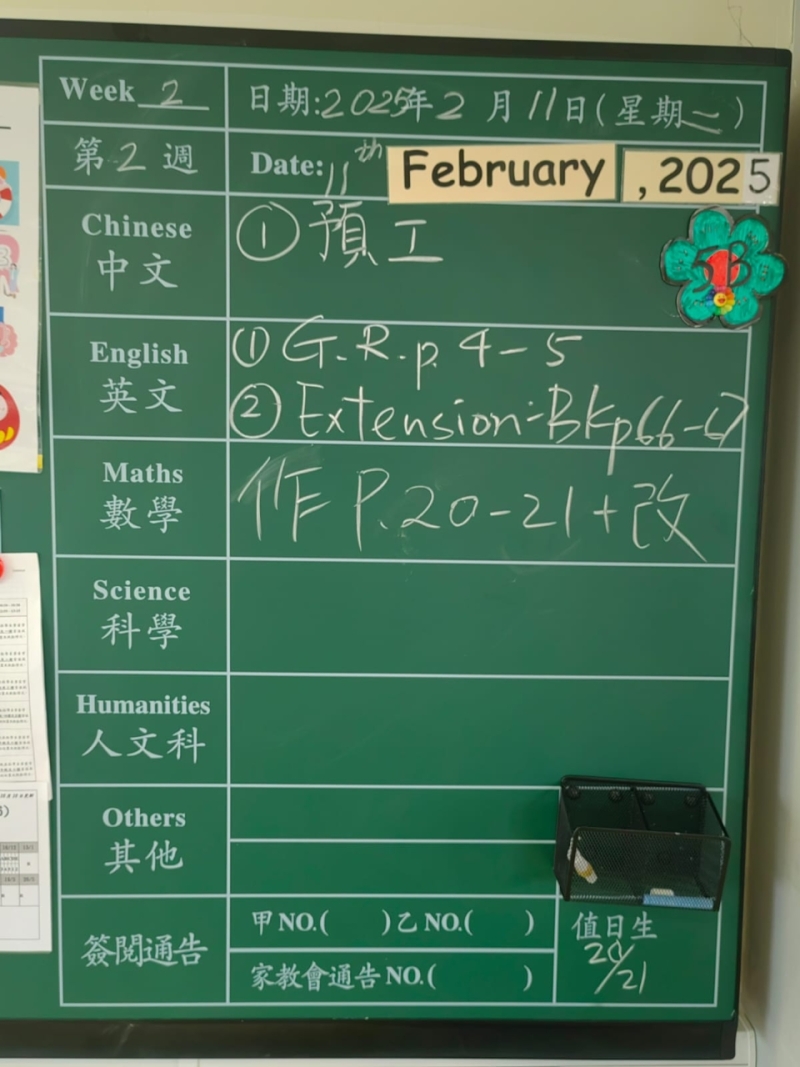 Week 2
日期:2025年2月11日(星期二)
第2週
Date: 11th February, 2025
Chinese
中文
① 預工
5B
English
英文
① G.R.p. 4-5
② Extension:-BKp66-67
Maths
數學
作 P.20-21+改
Science
科學
Humanities
人文科
Others
其他
簽閱通告
甲NO.( )乙NO.( )
家教會通告NO.( )
值日生
20/21